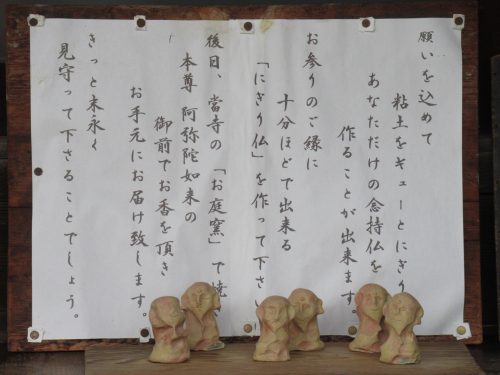 願いを込めて
粘土をギューとにぎり
あなただけの念持仏を
作ることが出来ます
お参りのご縁に
十分ほどで出来る
「にぎり仏」を作って下さい
後日、當寺の「お庭窯」で焼
本尊 阿弥陀如来の
御前でお香を頂き
お手元にお届け致します。
きっと末永く
見守って下さることでしょう。